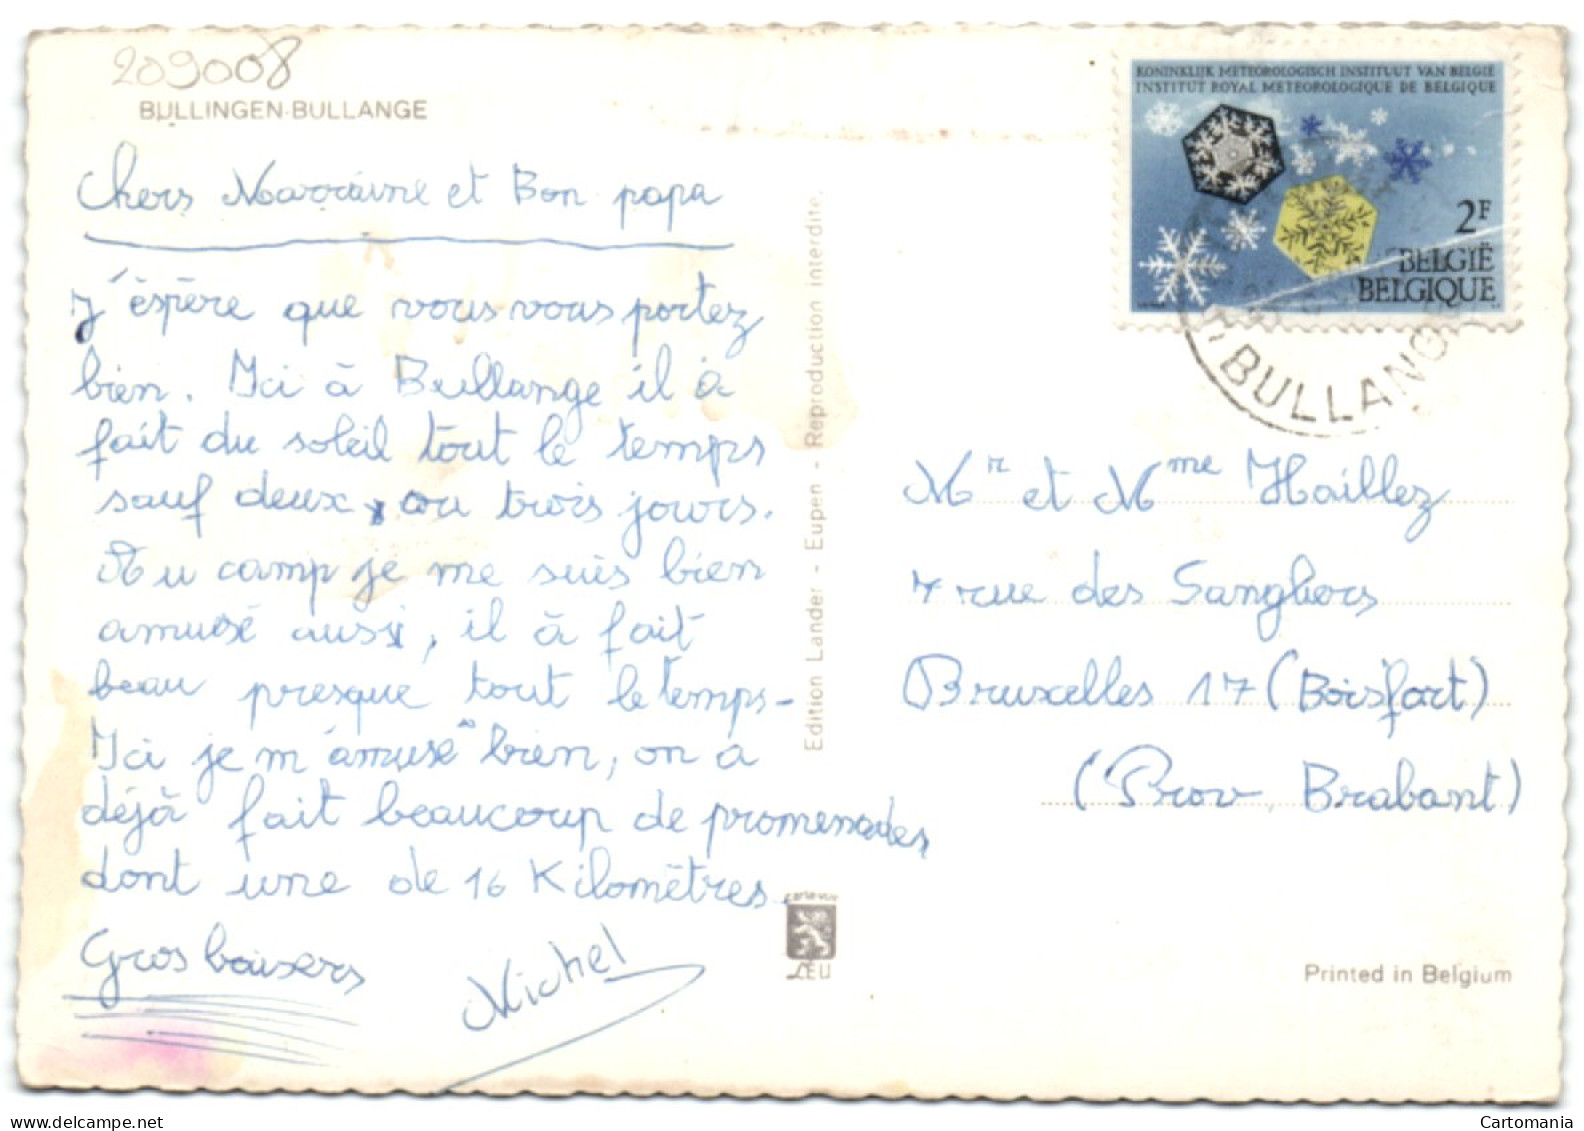 209008
BÜLLINGEN-BULLANGE
Chers Marraine et Bon papa
J'éspère que vous vous portez
bien. Ici à Bullange il à
fait du soleil tout le temps
sauf deux, ou trois jours.
Au camp je me suis bien
amusé aussi, il à fait
beau presque tout le temps-
Ici je m'amuse bien, on a
déjà fait beaucoup de promenades
dont une de 16 Kilomètres.
Gros baisers
Michel
Edition Lander - Eupen - Reproduction interdite.
carte vue
LEU
KONINKLIJK METEOROLOGISCH INSTITUUT VAN BELGIE
INSTITUT ROYAL METEOROLOGIQUE DE BELGIQUE
2F
BELGIË
BELGIQUE
BULLANGE
Mr et Mme Haillez
7 rue des Sanglors
Bruxelles 17 (Boisfort)
(Prov. Brabant)
Printed in Belgium
www.delcampe.net
Cartomania